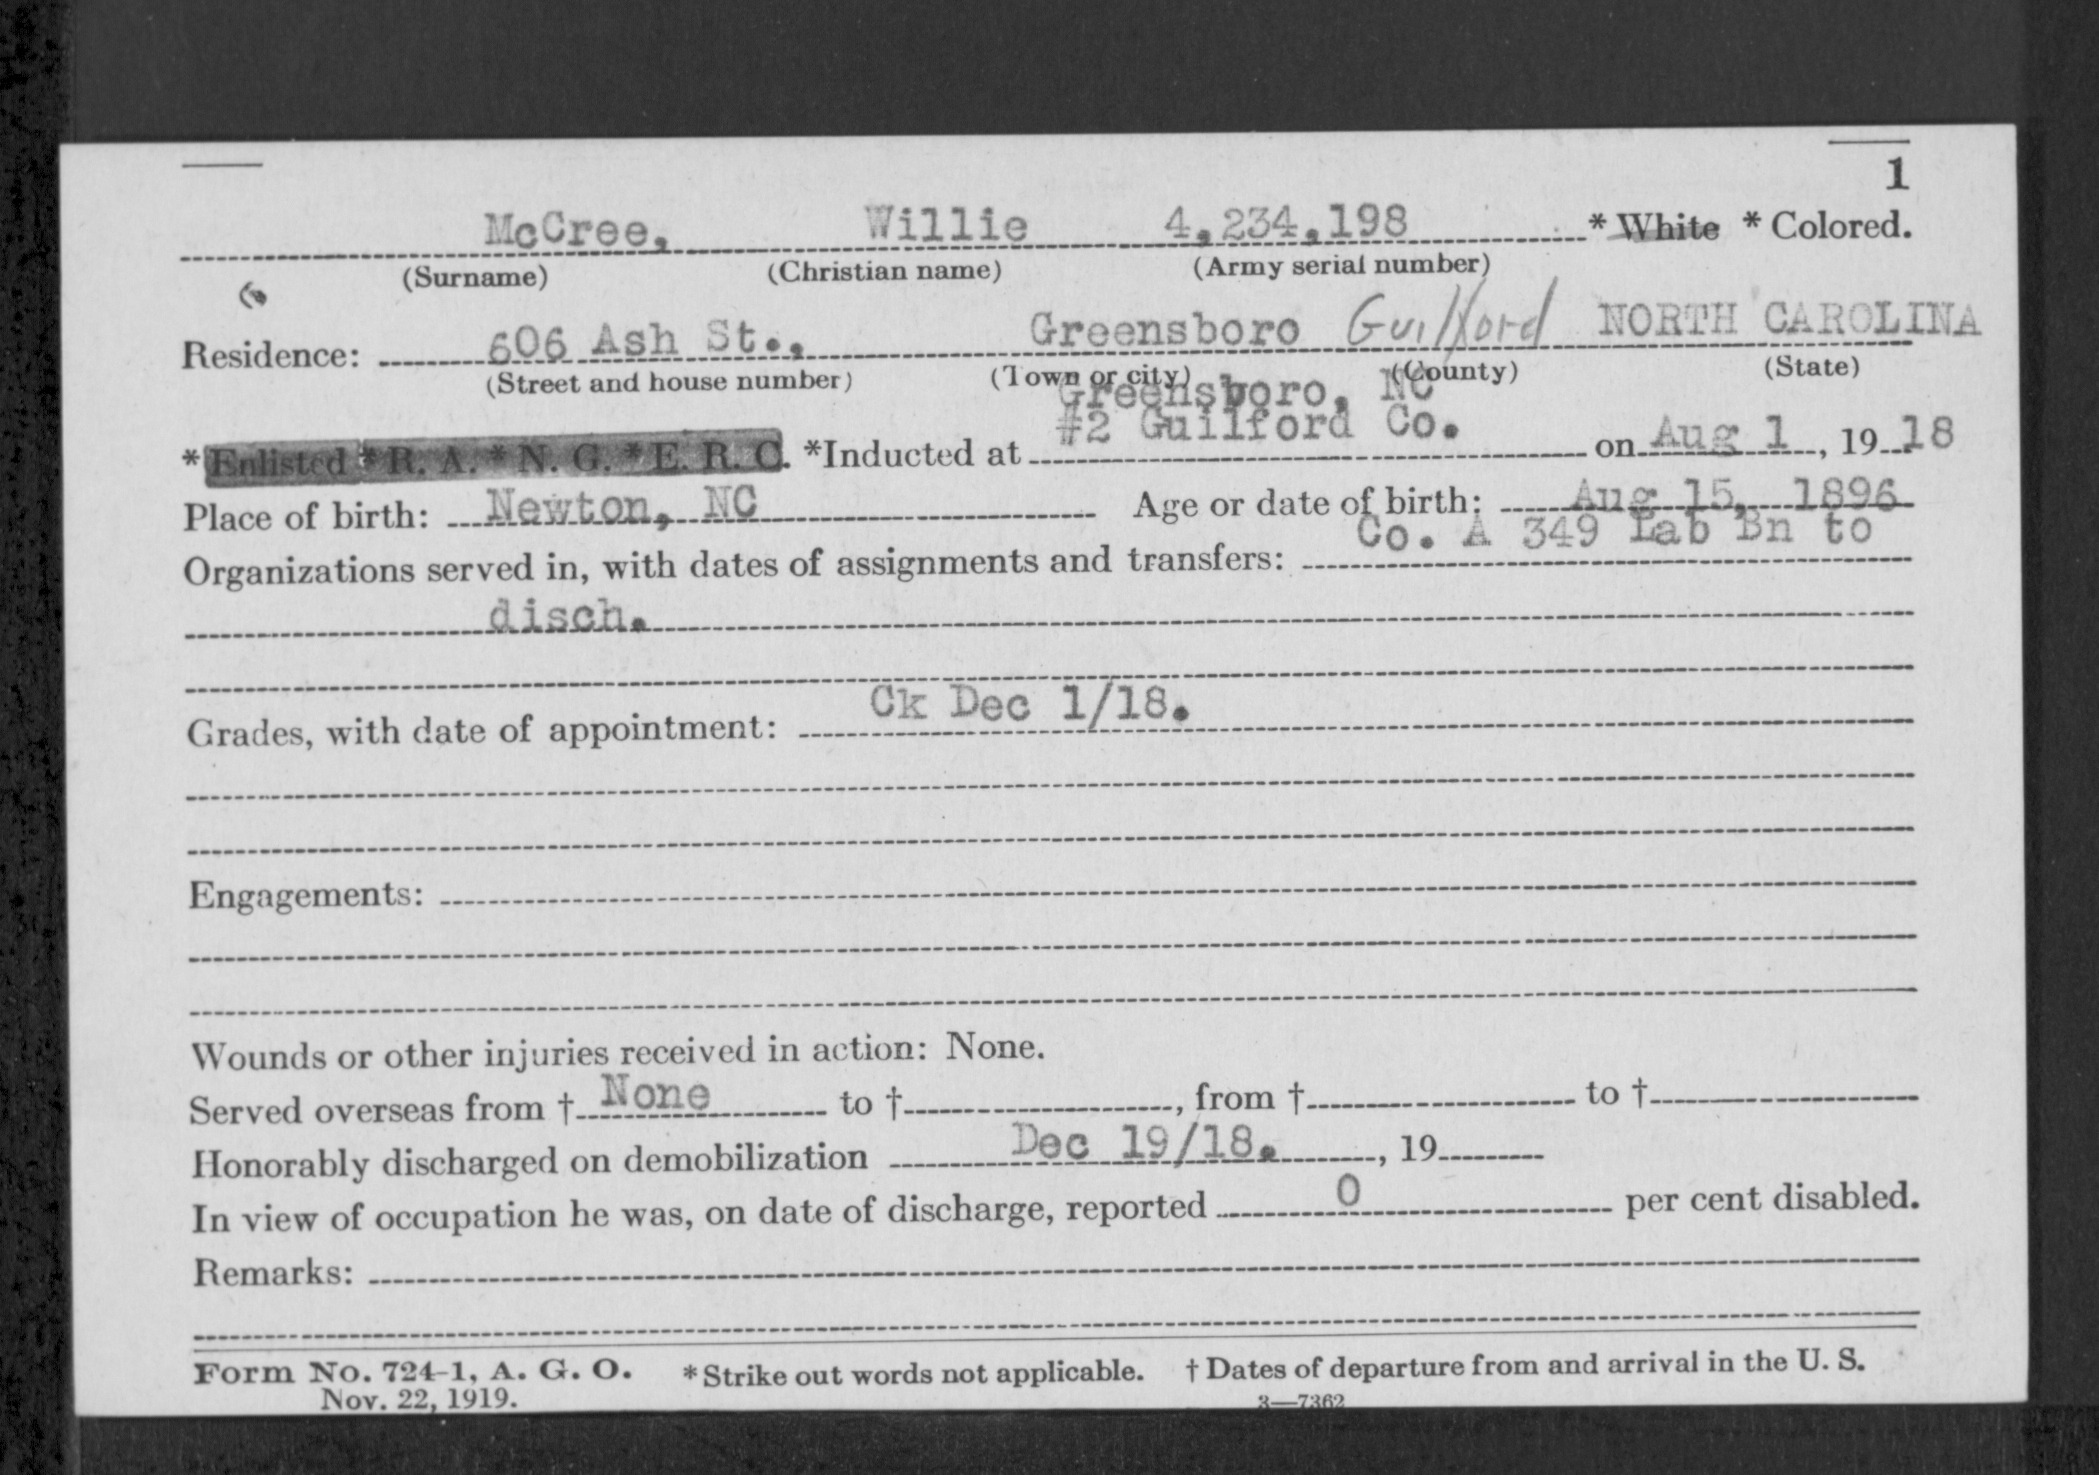 1
McCree, Willie 4,234,198 * White * Colored.
(Surname) (Christian name) (Army serial number)
Residence: 606 Ash St., Greensboro Guilford NORTH CAROLINA
(Street and house number) (Town or city) (County) (State)
Greensboro, NC
#2 Guilford Co.
* Enlisted * R. A. * N. G. * E. R. C. *Inducted at on Aug 1, 19 18
Place of birth: Newton, NC Age or date of birth: Aug 15, 1896
Co. A 349 Lab Bn to
Organizations served in, with dates of assignments and transfers:
disch.
Ck Dec 1/18.
Grades, with date of appointment:
Engagements:
Wounds or other injuries received in action: None.
Served overseas from † None to † , from † to †
Honorably discharged on demobilization Dec 19/18. , 19
In view of occupation he was, on date of discharge, reported 0 per cent disabled.
Remarks:
Form No. 724-1, A. G. O. * Strike out words not applicable. † Dates of departure from and arrival in the U. S.
Nov. 22, 1919. 3—7362